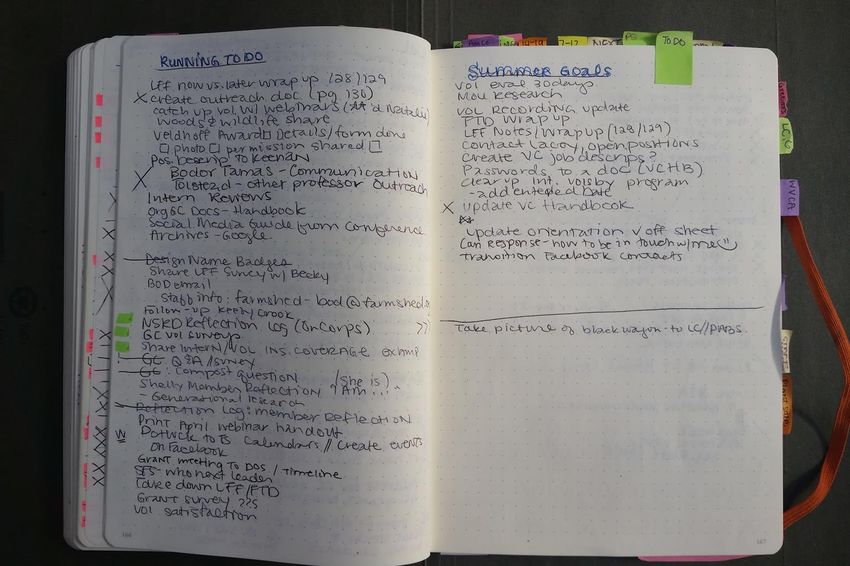 RUNNING TO DO
LFF now vs. later wrap up 128/129
X create outreach doc (pg. 136)
catch up vol w/ webinars
Woods & wildlife share
Veldhoff Award Details/form done
photo permission shared
Pos. Descrip to Keenan
Bodor Tamas - Communication
X - other professor outreach
Intern Reviews
Org GC Docs - Handbook
Social Media Guide from Conference
Archives - Google
Design Name Badges
Share LFF Survey w/ Becky
BOD email
Staff info: farmshed-bod@farmshed.
Follow-up Kerry Crook
NSRD Reflection Log (OnCorps) >>
GC vol surveys
Share Intern/Vol ins. coverage
GC Q&A/survey
GC: Compost question (she is)
Shelly Member Reflection
- Generational Research
Reflection Log: member Reflection
Print April webinar handout
Potluck to TS calendars // Create events
on Facebook
Grant meeting To DOS / Timeline
SFS who next leader
Take down LFF/FTD
Grant survey ??S
Vol satisfaction
166
PS
TO DO
7-12
NEXT
Summer Goals
Vol eval 30 days
Mou Research
Vol RECORDING update
FTD Wrap up
LFF Notes/Wrap up (128/129)
Contact Lacey, open positions
Create VC job descrips?
Passwords to a doc (VCHB)
Clear up Int. vols by program
- add entered Date
X update VC Handbook
update orientation v off sheet
Can response - how to be in touch w/ me
Transition Facebook contacts
Take picture of black wagon - to LC//
167